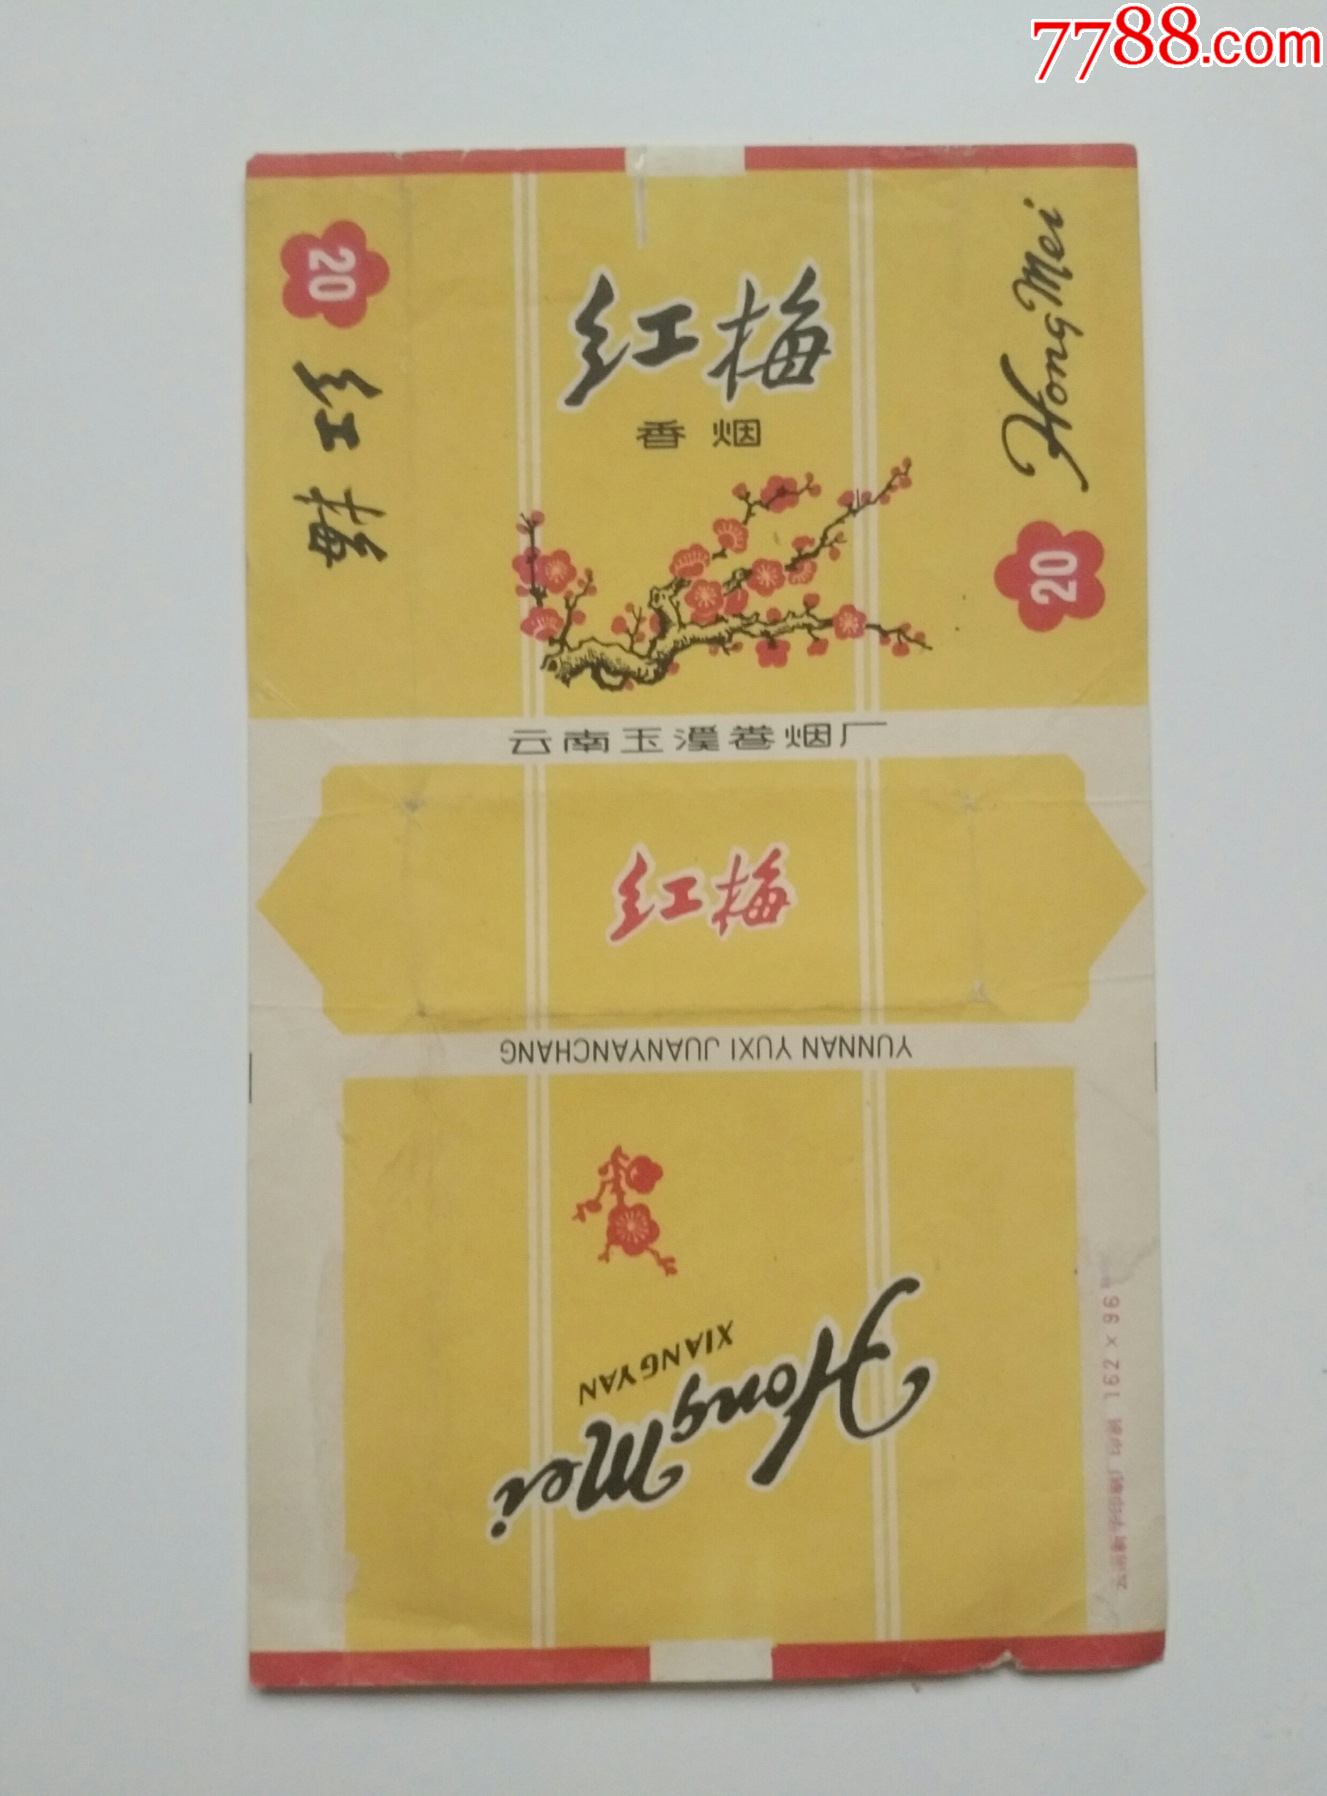 7788.com
20
红梅
红梅
香烟
Hong Mei
20
云南玉溪卷烟厂
红梅
YUNNAN YUXI JUANYANCHANG
Hong Mei
XIANGYAN
162×96